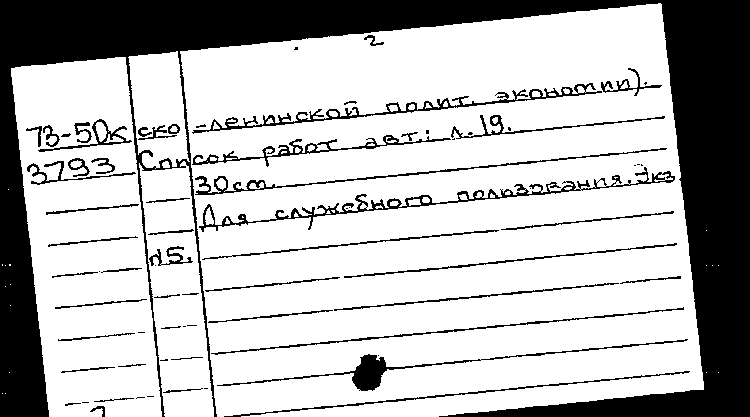 2
73-5Dк ско-ленинской полит. экономии).
3793 Список работ авт.: л. 19.
30 cm.
Для служебного пользования. Экз.
N5.